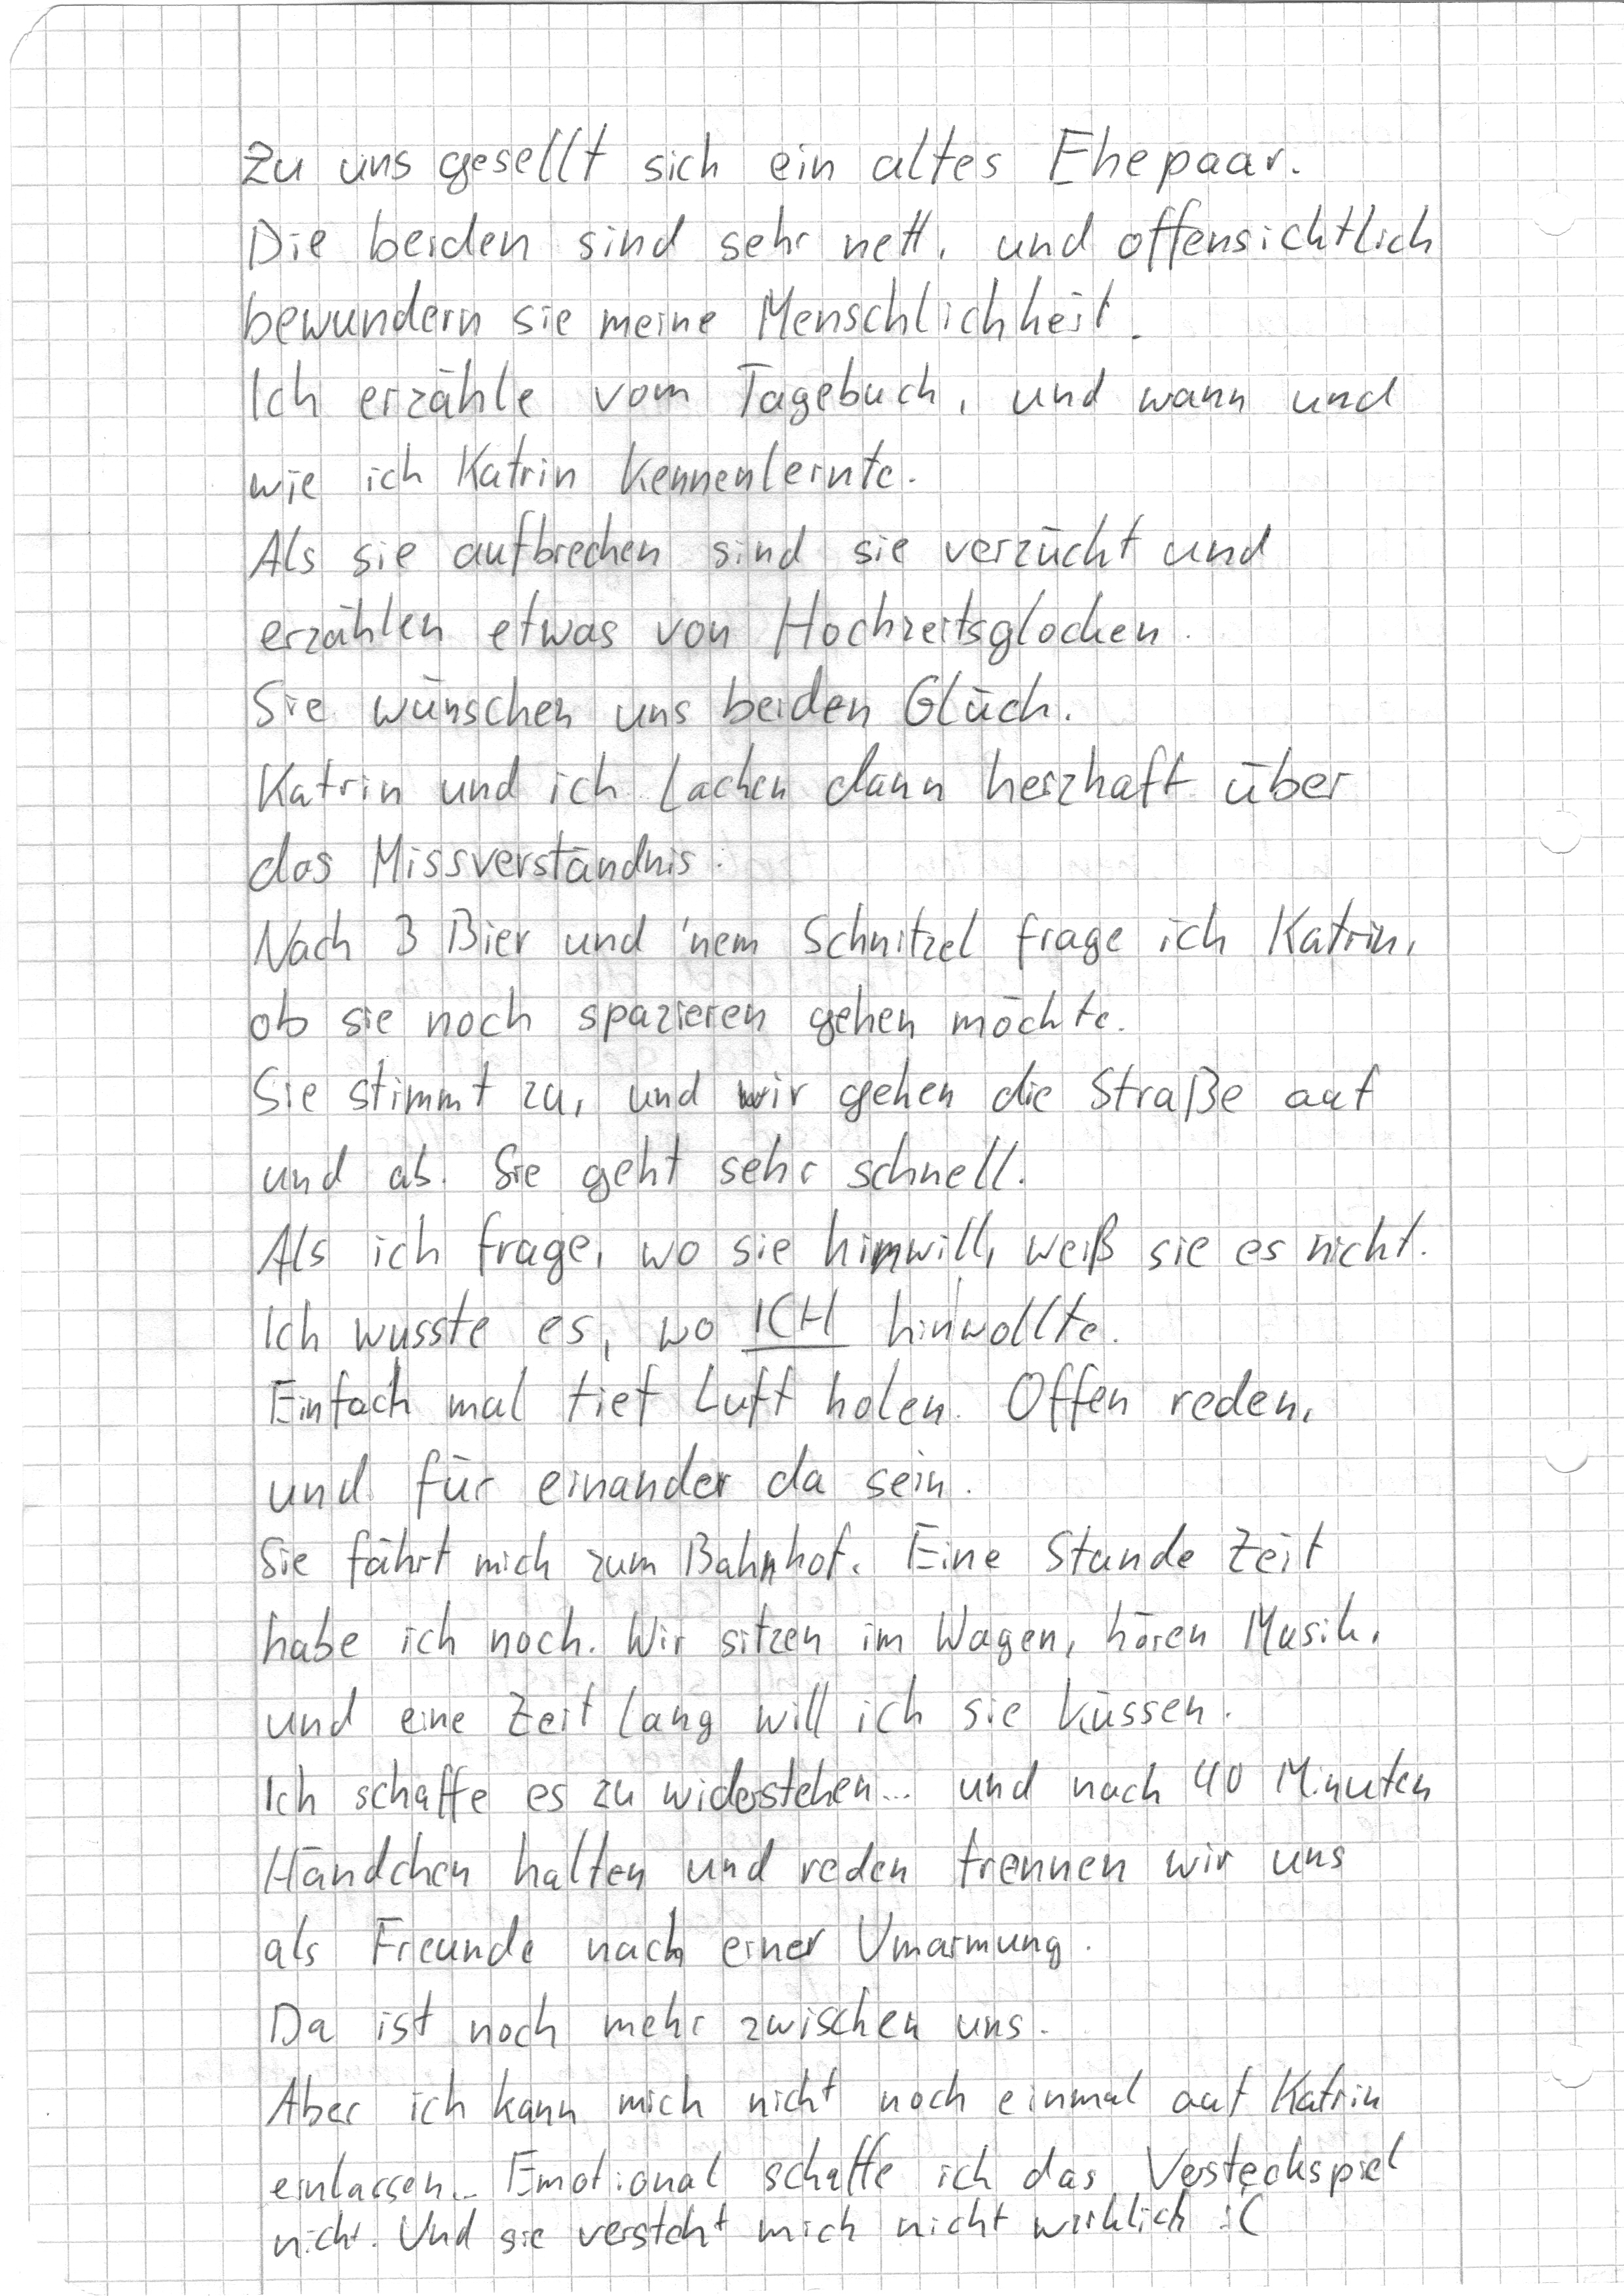 Zu uns gesellt sich ein altes Ehepaar.
Die beiden sind sehr nett, und offensichtlich
bewundern sie meine Menschlichkeit.
Ich erzähle vom Tagebuch, und wann und
wie ich Katrin kennenlernte.
Als sie aufbrechen sind sie verzückt und
erzählen etwas von Hochzeitsglocken.
Sie wünschen uns beiden Glück.
Katrin und ich lachen dann herzhaft über
das Missverständnis.
Nach 3 Bier und 'nem Schnitzel frage ich Katrin,
ob sie noch spazieren gehen möchte.
Sie stimmt zu, und wir gehen die Straße auf
und ab. Sie geht sehr schnell.
Als ich frage, wo sie hinwill, weiß sie es nicht.
Ich wusste es, wo ICH hinwollte.
Einfach mal tief Luft holen. Offen reden,
und für einander da sein.
Sie fährt mich zum Bahnhof. Eine Stunde Zeit
habe ich noch. Wir sitzen im Wagen, hören Musik,
und eine Zeit lang will ich sie küssen.
Ich schaffe es zu widerstehen... und nach 40 Minuten
Händchen halten und reden trennen wir uns
als Freunde nach einer Umarmung.
Da ist noch mehr zwischen uns.
Aber ich kann mich nicht noch einmal auf Katrin
einlassen... Emotional schaffe ich das Versteckspiel
nicht. Und sie versteht mich nicht wirklich :(